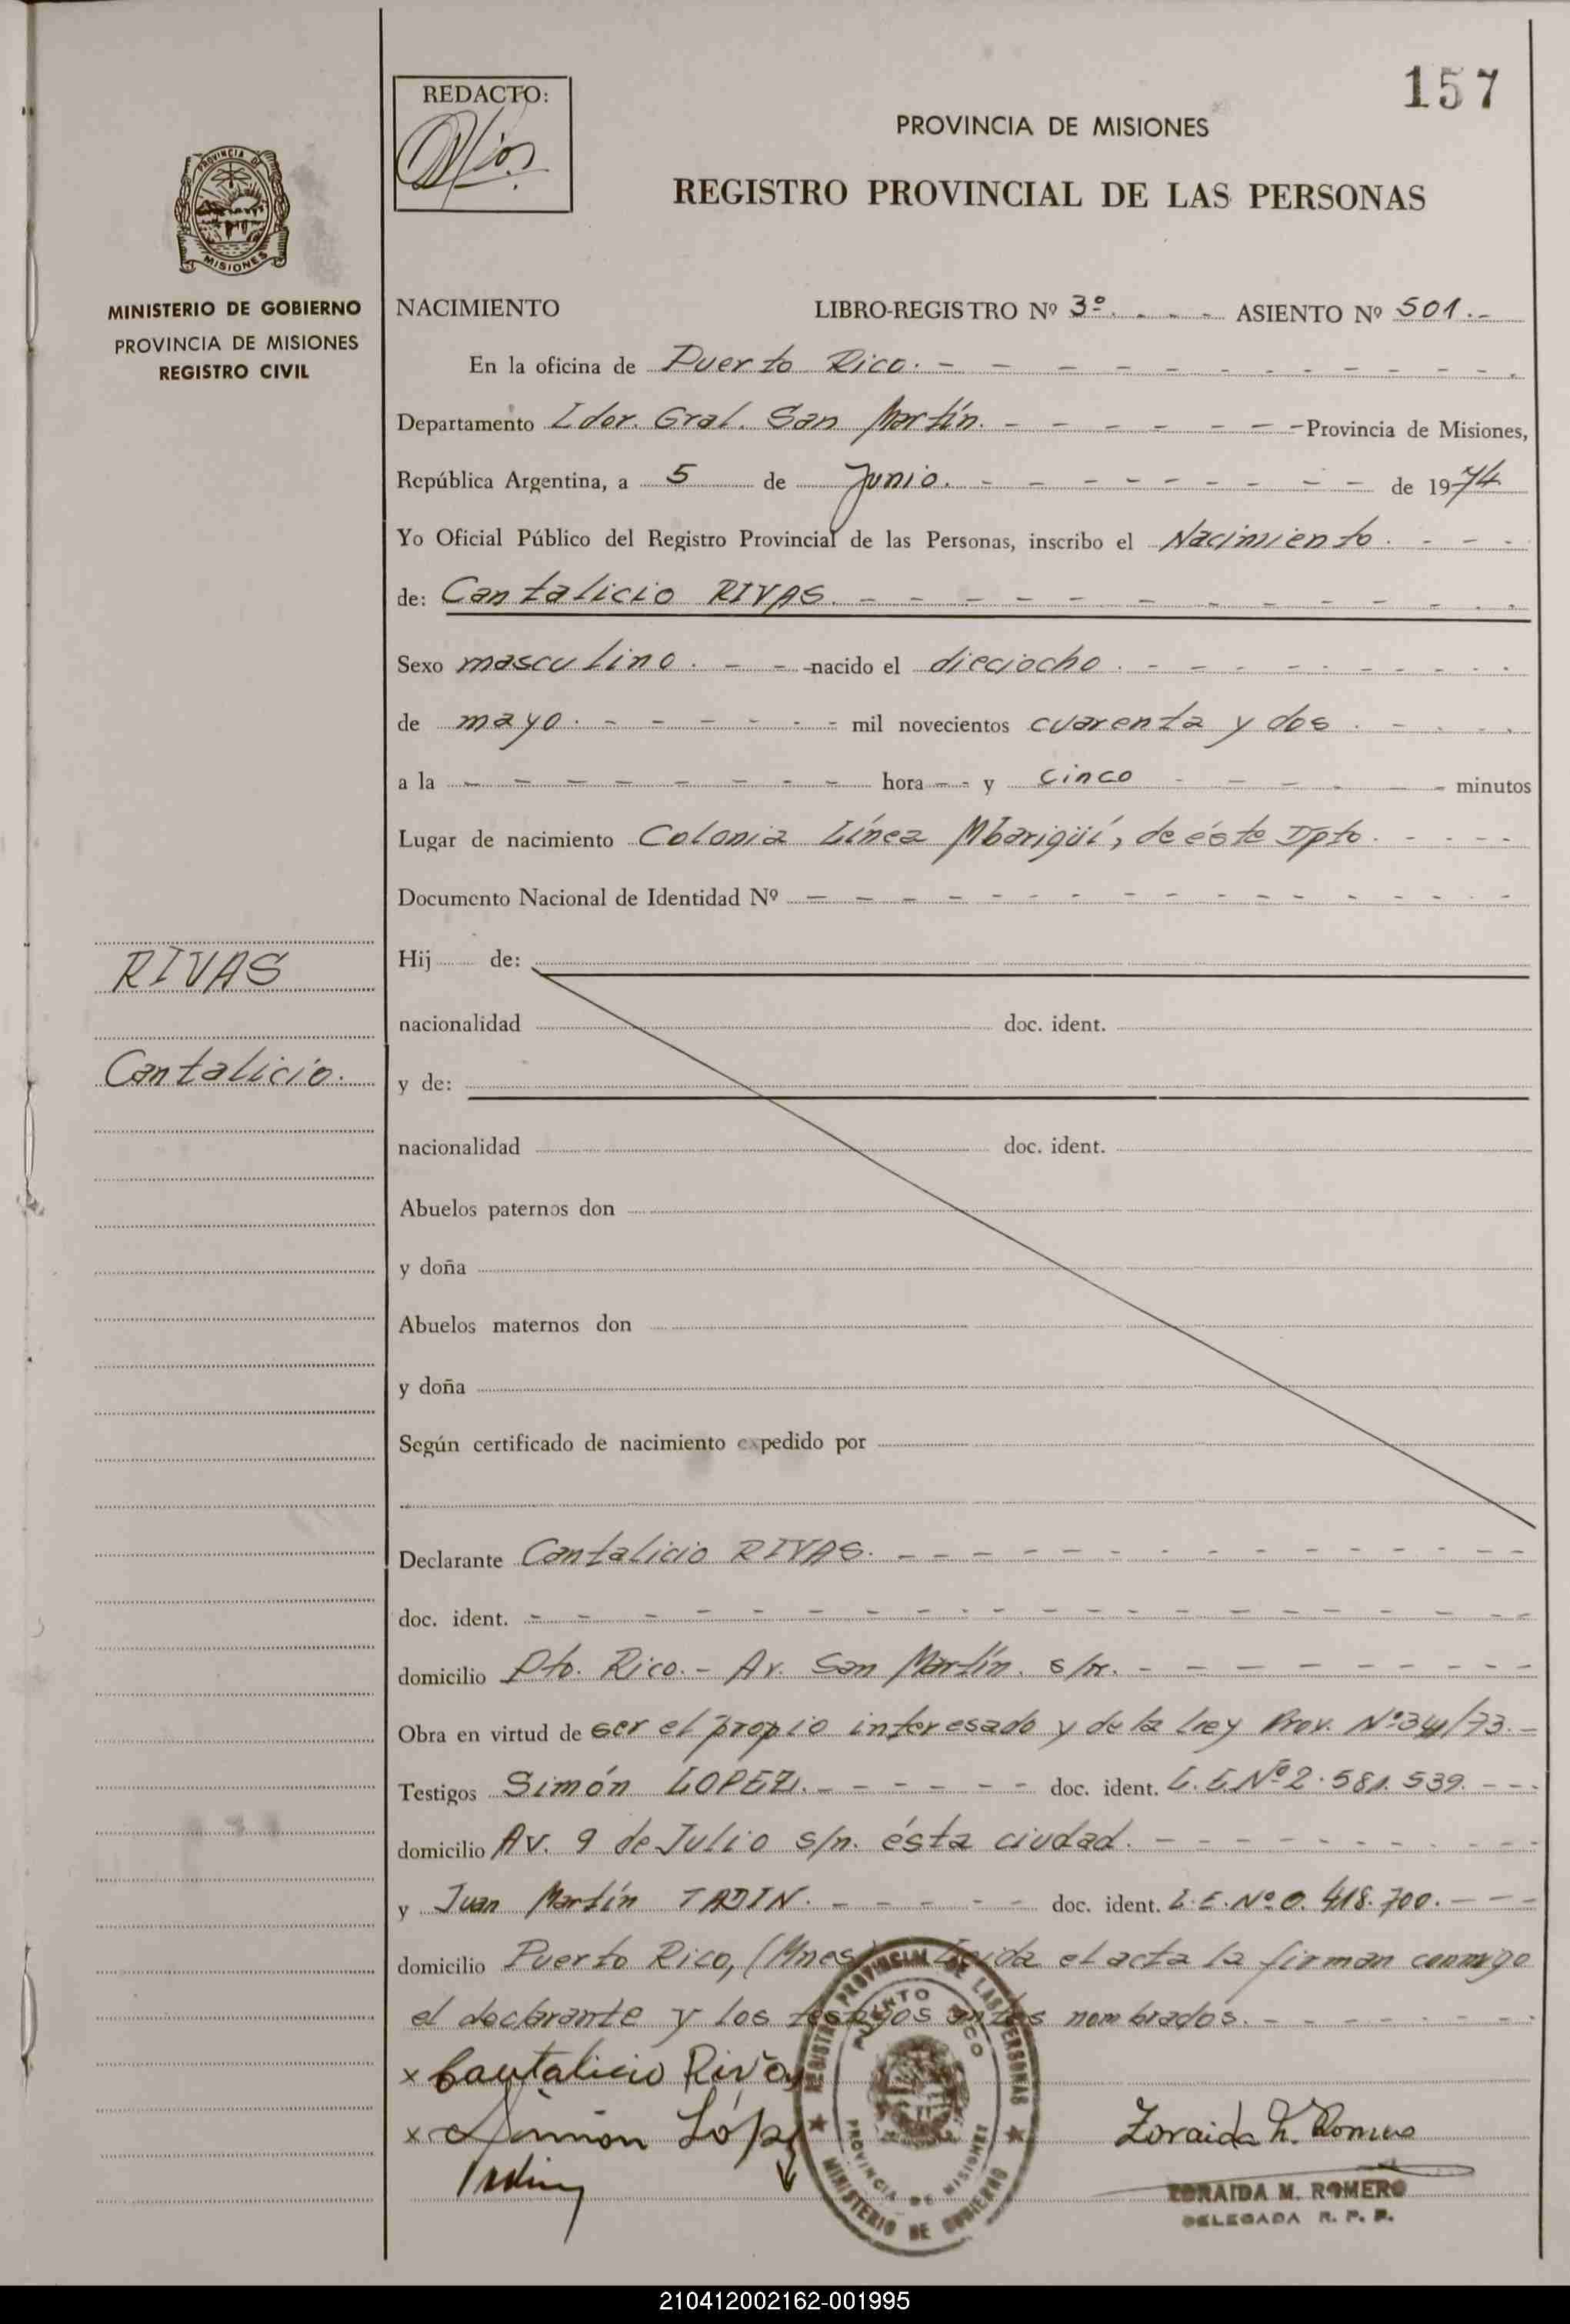 157
REDACTO:
PROVINCIA DE MISIONES
REGISTRO PROVINCIAL DE LAS PERSONAS
PROVINCIA DE
MISIONES
MINISTERIO DE GOBIERNO
PROVINCIA DE MISIONES
REGISTRO CIVIL
NACIMIENTO LIBRO-REGISTRO Nº 3º. - - - ASIENTO Nº 501.-
En la oficina de Puerto Rico. - - - - - - - - - - - -
Departamento Ldor. Gral. San Martín. - - - - - - - Provincia de Misiones,
República Argentina, a 5 de Junio. - - - - - - - - de 1974
Yo Oficial Público del Registro Provincial de las Personas, inscribo el Nacimiento. - - -
de: Cantalicio RIVAS. - - - - - - - - - - - -
Sexo masculino. - - - nacido el dieciocho. - - - - - - - - - -
de mayo. - - - - - - - mil novecientos cuarenta y dos. - - - -
a la - - - - - - - - hora - - y cinco - - - - - - minutos
Lugar de nacimiento Colonia Línea Mbarigüí, de éste Dpto. - - - -
Documento Nacional de Identidad Nº - - - - - - - - - - - - - -
Hij de:
RIVAS
nacionalidad doc. ident.
Cantalicio.
y de:
nacionalidad doc. ident.
Abuelos paternos don
y doña
Abuelos maternos don
y doña
Según certificado de nacimiento expedido por
Declarante Cantalicio RIVAS. - - - - - - - - - - - - -
doc. ident. - - - - - - - - - - - - - - - - - -
domicilio Pto. Rico. - Av. San Martín. s/n. - - - - - - - - -
Obra en virtud de ser el propio interesado y de la Ley Prov. Nº 341/73. -
Testigos Simón LOPEZ. - - - - - - doc. ident. L.E. Nº 2.581.539. - - -
domicilio Av. 9 de Julio s/n. ésta ciudad. - - - - - - - - - -
y Juan Martín TADIN. - - - - - - doc. ident. L.E. Nº 0.418.700. - - -
domicilio Puerto Rico, (Mnes) Leída el acta la firman conmigo
el declarante y los testigos antes nombrados. - - - - - - -
x Cantalicio Rivas
x Simón López
Zoraida M. Romero
ZORAIDA M. ROMERO
DELEGADA R. P. P.
REGISTRO PROVINCIAL DE LAS PERSONAS
PUERTO RICO
PROVINCIA DE MISIONES
MINISTERIO DE GOBIERNO
210412002162-001995